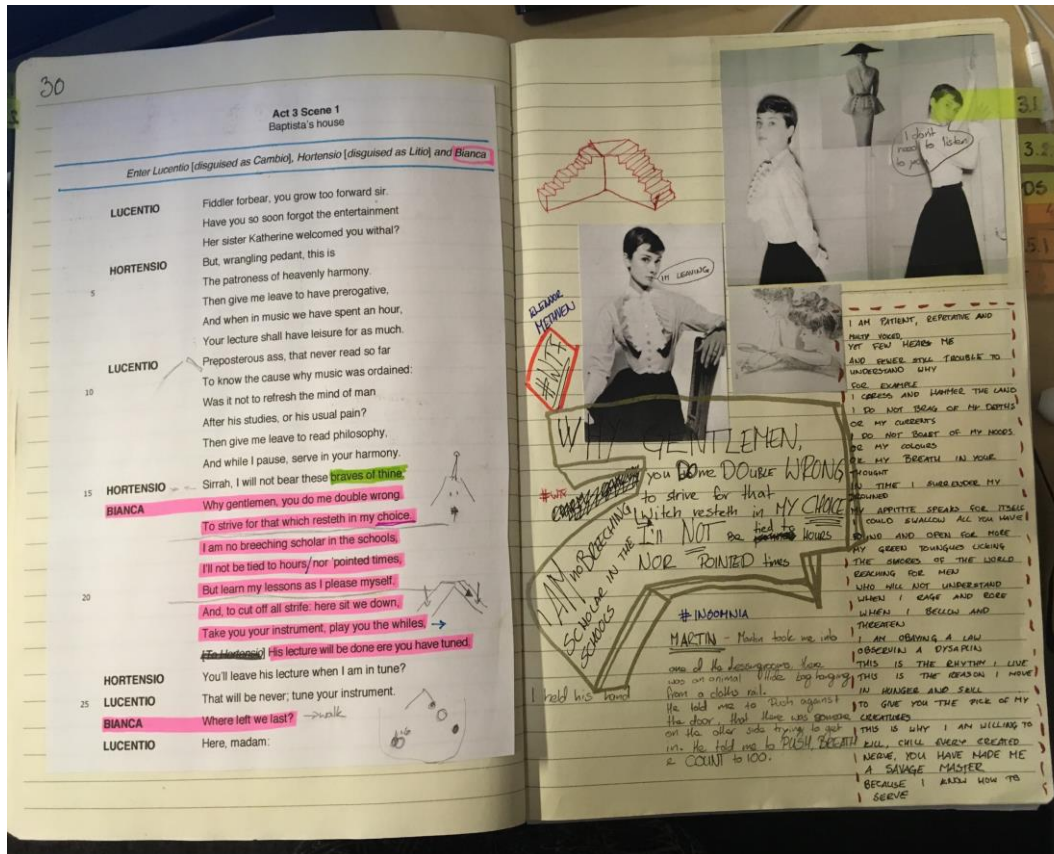 30
Act 3 Scene 1
Baptista's house
Enter Lucentio [disguised as Cambio], Hortensio [disguised as Litio] and Bianca
LUCENTIO Fiddler forbear, you grow too forward sir.
Have you so soon forgot the entertainment
Her sister Katherine welcomed you withal?
HORTENSIO But, wrangling pedant, this is
5 The patroness of heavenly harmony.
Then give me leave to have prerogative,
And when in music we have spent an hour,
Your lecture shall have leisure for as much.
LUCENTIO Preposterous ass, that never read so far
10 To know the cause why music was ordained:
Was it not to refresh the mind of man
After his studies, or his usual pain?
Then give me leave to read philosophy,
And while I pause, serve in your harmony.
15 HORTENSIO Sirrah, I will not bear these braves of thine.
BIANCA Why gentlemen, you do me double wrong
To strive for that which resteth in my choice.
I am no breeching scholar in the schools,
I'll not be tied to hours/nor 'pointed times,
20 But learn my lessons as I please myself,
And, to cut off all strife: here sit we down,
Take you your instrument, play you the whiles,
[To Hortensio] His lecture will be done ere you have tuned.
HORTENSIO You'll leave his lecture when I am in tune?
25 LUCENTIO That will be never; tune your instrument.
BIANCA Where left we last? → walk
LUCENTIO Here, madam:
I don't
need to listen
to you
3.1.
3.2
D5
5.1
I'M LEAVING
ELEANOR
METHVEN
#WTF
WHY GENTLEMEN,
you DO me DOUBLE WRONG
#WTF
to strive for that
Witch resteth in MY CHOICE
I'll NOT be tied to HOURS
NOR POINTED times
I AM no BREECHING
SCHOLAR IN THE
SCHOOLS
#INSOMNIA
MARTIN - Martin took me into
one of the dressingrooms, there
was an animal Hide bag hanging
from a cloths rail.
I held his hand
He told me to Push against
the door, that there was someone
on the other side trying to get
in. He told me to PUSH, BREATH
& COUNT to 100.
I AM PATIENT, REPETATIVE AND
MULTY VOICED,
YET FEW HEARS ME
AND FEWER STILL TROUBLE TO
UNDERSTAND WHY
FOR EXAMPLE
I CARESS AND HAMMER THE LAND
I DO NOT BRAG OF MY DEPTHS
OR MY CURRENTS
I DO NOT BOAST OF MY MOODS
OR MY COLOURS
OR MY BREATH IN YOUR
THOUGHT
IN TIME I SURRENDER MY
DROWNED
MY APPITITE SPEAKS FOR ITSELF
I COULD SWALLOW ALL YOU HAVE
FOUND AND OPEN FOR MORE
MY GREEN TOUNGUES LICKING
THE SHORES OF THE WORLD
REACHING FOR MEN
WHO WILL NOT UNDERSTAND
WHEN I RAGE AND RORE
WHEN I BELLOW AND
THREATEN
I AM OBAYING A LAW
OBSERVIN A DYSAPLIN
THIS IS THE RHYTHM I LIVE
THIS IS THE REASON I MOVE
IN HUNGER AND SKILL
TO GIVE YOU THE PICK OF MY
CREATURES
THIS IS WHY I AM WILLING TO
KILL, CHILL EVERY CREATED
NERVE, YOU HAVE MADE ME
A SAVAGE MASTER
BECAUSE I KNOW HOW TO
SERVE